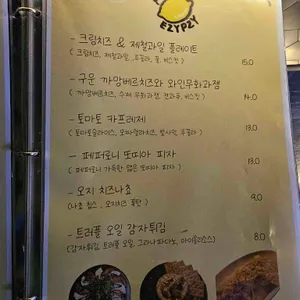 EZYPZY
- 크림치즈 & 제철과일 플레이트
( 크림치즈, 제철과일, 루꼴라, 꿀, 비스킷 ) 15.0
- 구운 까망베르치즈와 와인무화과잼
( 까망베르치즈, 수제 무화과잼, 견과류, 비스킷 ) 14.0
- 토마토 카프레제
( 토마토슬라이스, 모짜렐라치즈, 발사믹, 루꼴라 ) 13.0
- 페퍼로니 또띠아 피자
( 페퍼로니 가득한 얇은 또띠아 피자 ) 13.0
- 오지 치즈나쵸
( 나쵸 칩스, 오지치즈 퐁듀 ) 9.0
- 트러플 오일 감자튀김 8.0
( 감자튀김, 트러플 오일, 그라나파다노, 아이올리소스 )